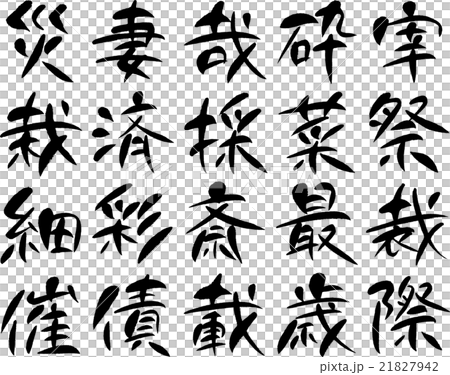 災妻哉砕宰
栽済採菜祭
細彩斎最裁
催債載歳際
pixta.jp - 21827942